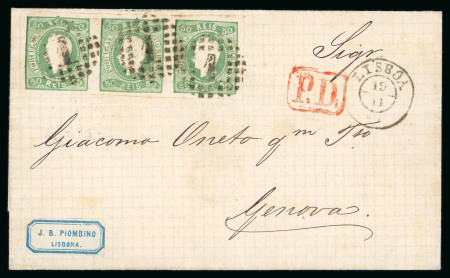 CORREIO 50 REIS 50
50 REIS
CORREIO 50 REIS 50
50 REIS
CORREIO 50 REIS 50
50 REIS
Sigr
P.D.
LISBOA
19
11
Giacomo Oneto qm Tio
Genova.
J. B. PIOMBINO
LISBONA.